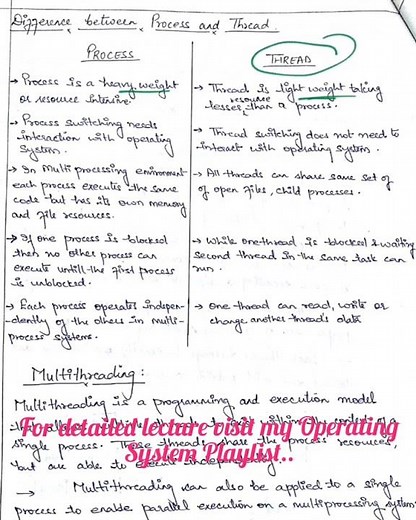 Difference between Process and Thread.
PROCESS
→ Process is a heavy weight
or resource intensive.
→ Process switching needs
interaction with operating
system.
→ In Multi processing environment
each process executes the same
code but has its own memory
and file resources.
→ If one process is blocked
then no other process can
execute untill the first process
is unblocked.
→ Each process operates indepen-
dently of the others in multi-
process systems.
THREAD
→ Thread is light weight taking
lesser resource than a process.
→ Thread switching does not need to
interact with operating system.
→ All threads can share same set of
of open files, child processes.
→ While one thread is blocked & waiting
second thread in the same task can
run.
→ One thread can read, write or
change another threads data
Multithreading:
Multithreading is a programming and execution model
For detailed lecture visit my Operating
System Playlist..
single process. These threads share the process resources,
but are able to execute independently.
→ Multithreading can also be applied to a single
process to enable parallel execution on a multiprocessing system